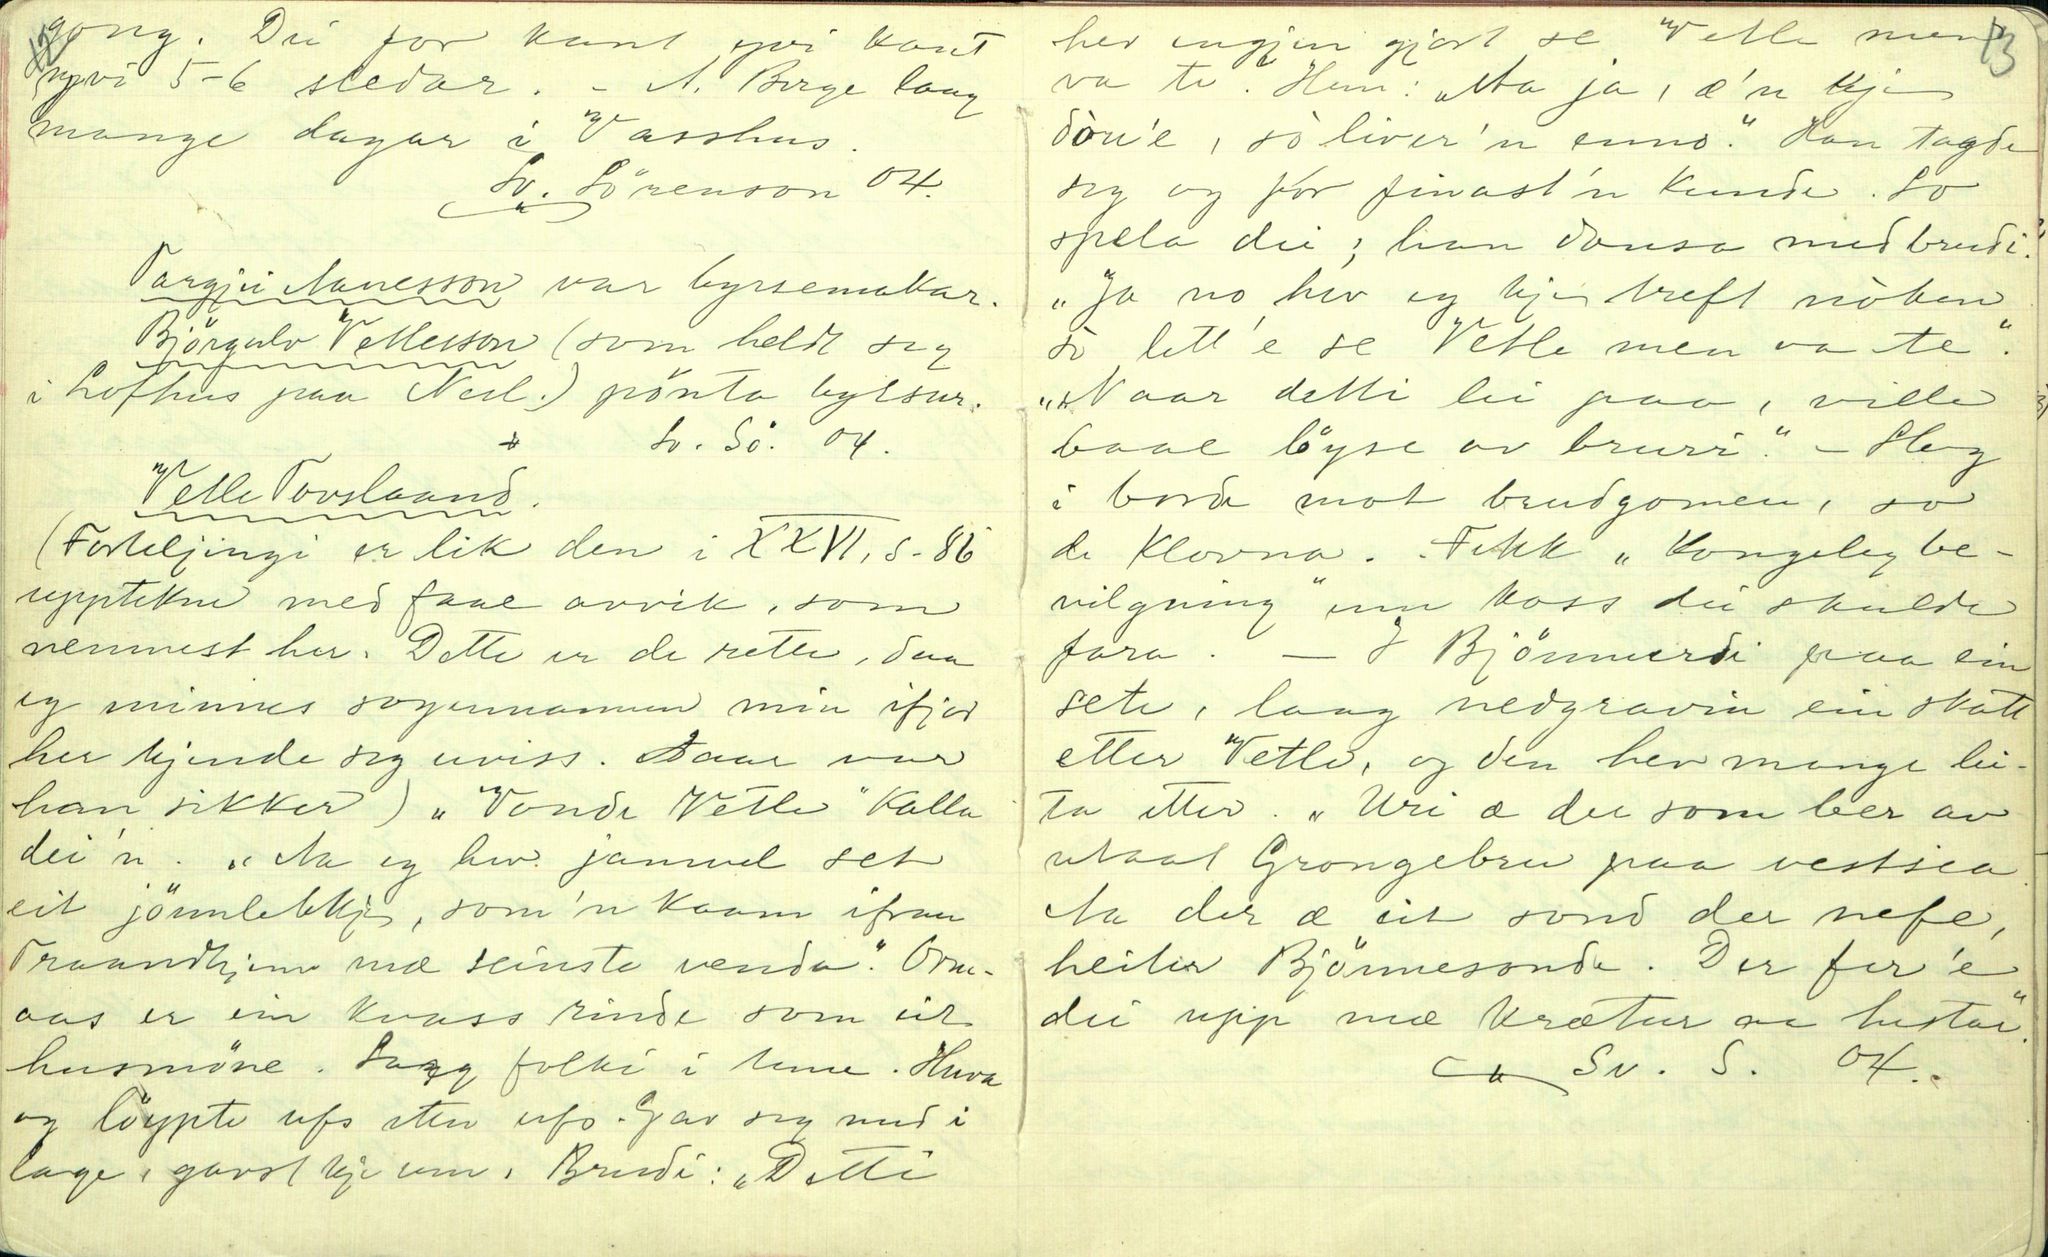 12
gong. Dei for kant yvi kant
yvi 5-6 stedar. - A. Berge laag
mange dagar i Vasshus.
Sv. Sörenson 04.
Targjei Aanesson var byrsemakar.
Björgulv Vetlesson (som heldt seg
i Lofthus paa Nesl.) pönta byrsur.
Sv. Sö. 04.
Vetle Torslaand.
(Forteljingi er lik den i XXVI, s. 86
upptekne med faae avvik, som
nemnest her. Dette er de rette, daa
eg minnes sogenmannen min ifjor
her kjende seg uviss. Aaar var
han sikker) "Vonde Vetle" kalla
dei'n. "Aa eg hev jamvel set
eit jönnlekkje, som'n kaam ifraa
Traandhjem mæ seinste venda". Orm-
aas er ein kvass rinde som eit
husmöne. Laag folki i tune. Huva
og löypte ufs etter ufs. Gav seg med i
lage, gavst kje um. Brudi: "Detti
13
hev ingjen gjort se Vetle men
va te. Hem: "Aa ja, æ'n kje
dön'e, so liver'n enno." Han tagde
seg og for finast'n kunde. So
spela dei; han dansa med brudi.
"Ja no hev eg kje treft nóken
so lett'e se Vetle men va te".
"Naar detti lei paa, ville
baae löyse av bruri." - Hog
i borde mot brudgomen, so
de klovna. Fekk "Kongeleg be-
vilgning" um koss dei skulde
fara. - I Björnnurdi paa ein
sete, laag nedgravin ein skatt
etter Vetle, og den hev mange lei-
ta etter. "Uri æ dei som ber av
utaat Grongebru paa vestsea
Aa der æ eit sond der nefe,
heiter Björnnesonde. Der fer'e
dei upp mæ krætur aa hestar".
Sv. S. 04.